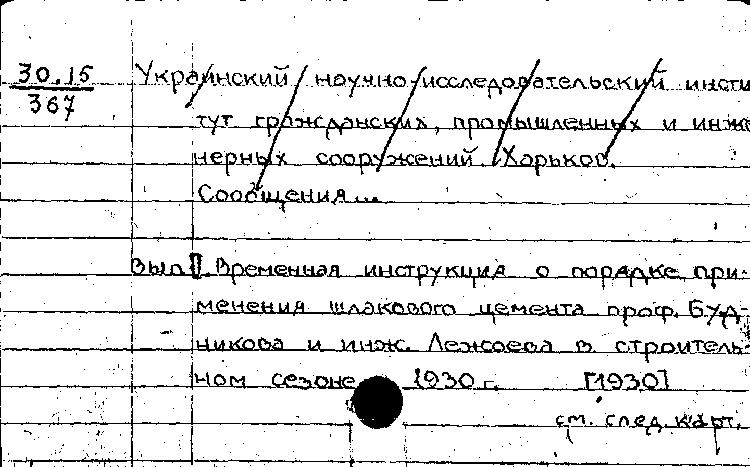 30.15
367
Украинский научно-исследовательский инсти
тут гражданских, промышленных и инже
нерных сооружений. Харьков.
Сообщения...
Вып. Временная инструкция о порядке при-
менения шлакового цемента проф. Буд-
никова и инж. Лежоева в строитель-
ном сезоне 1930 г. [1930]
см. след. карт.